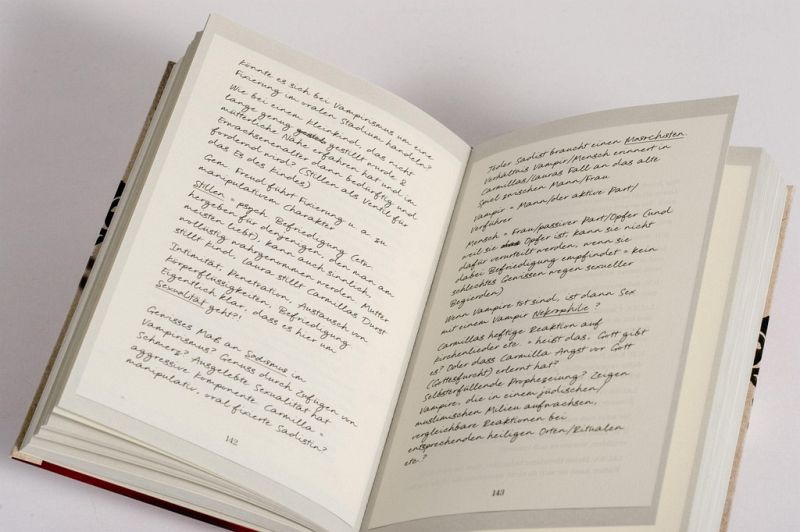 Könnte es sich bei Vampirismus um eine
Fixierung im oralen Stadium handeln?
Wie bei einem Kleinkind, das nicht
lange genug gestillt wurde &
mütterliche Nähe erfahren hat und im
Erwachsenenalter dann bedürftig und
fordernd wird? (Stillen als Ventil für
das Es des Kindes)
Gem. Freud führt Fixierung u. a. zu
manipulativem Charakter
Stillen = psych. Befriedigung (etw.
hergeben für denjenigen, den man am
meisten liebt), kann auch sinnlich,
wollüstig wahrgenommen werden. Mutter
stillt Kind, Laura stillt Carmillas Durst
Intimität, Penetration, Austausch von
Körperflüssigkeiten, Befriedigung
Eigentlich klar, dass es hier um
Sexualität geht?!
Gewisses Maß an Sadismus im
Vampirismus? Genuss durch Zufügen von
Schmerz? Ausgelebte Sexualität hat
aggressive Komponente Carmilla =
manipulativ, oral fixierte Sadistin?
142
Jeder Sadist braucht einen Masochisten.
Verhältnis Vampir/Mensch erinnert in
Carmillas/Lauras Fall an das alte
Spiel zwischen Mann/Frau
Vampir = Mann/der aktive Part/
Verführer
Mensch = Frau/passiver Part/Opfer (und
weil sie Opfer ist, kann sie nicht
dafür verurteilt werden, wenn sie
dabei Befriedigung empfindet = kein
schlechtes Gewissen wegen sexueller
Begierden)
Wenn Vampire tot sind, ist dann Sex
mit einem Vampir Nekrophilie?
Carmillas heftige Reaktion auf
Kirchenlieder etc. = heißt das, Gott gibt
es? Oder dass Carmilla Angst vor Gott
(Gottesfurcht) erlernt hat?
Selbsterfüllende Prophezeiung? Zeigen
Vampire, die in einem jüdischen/
muslimischen Milieu aufwachsen,
vergleichbare Reaktionen bei
entsprechenden heiligen Orten/Ritualen
etc.?
143